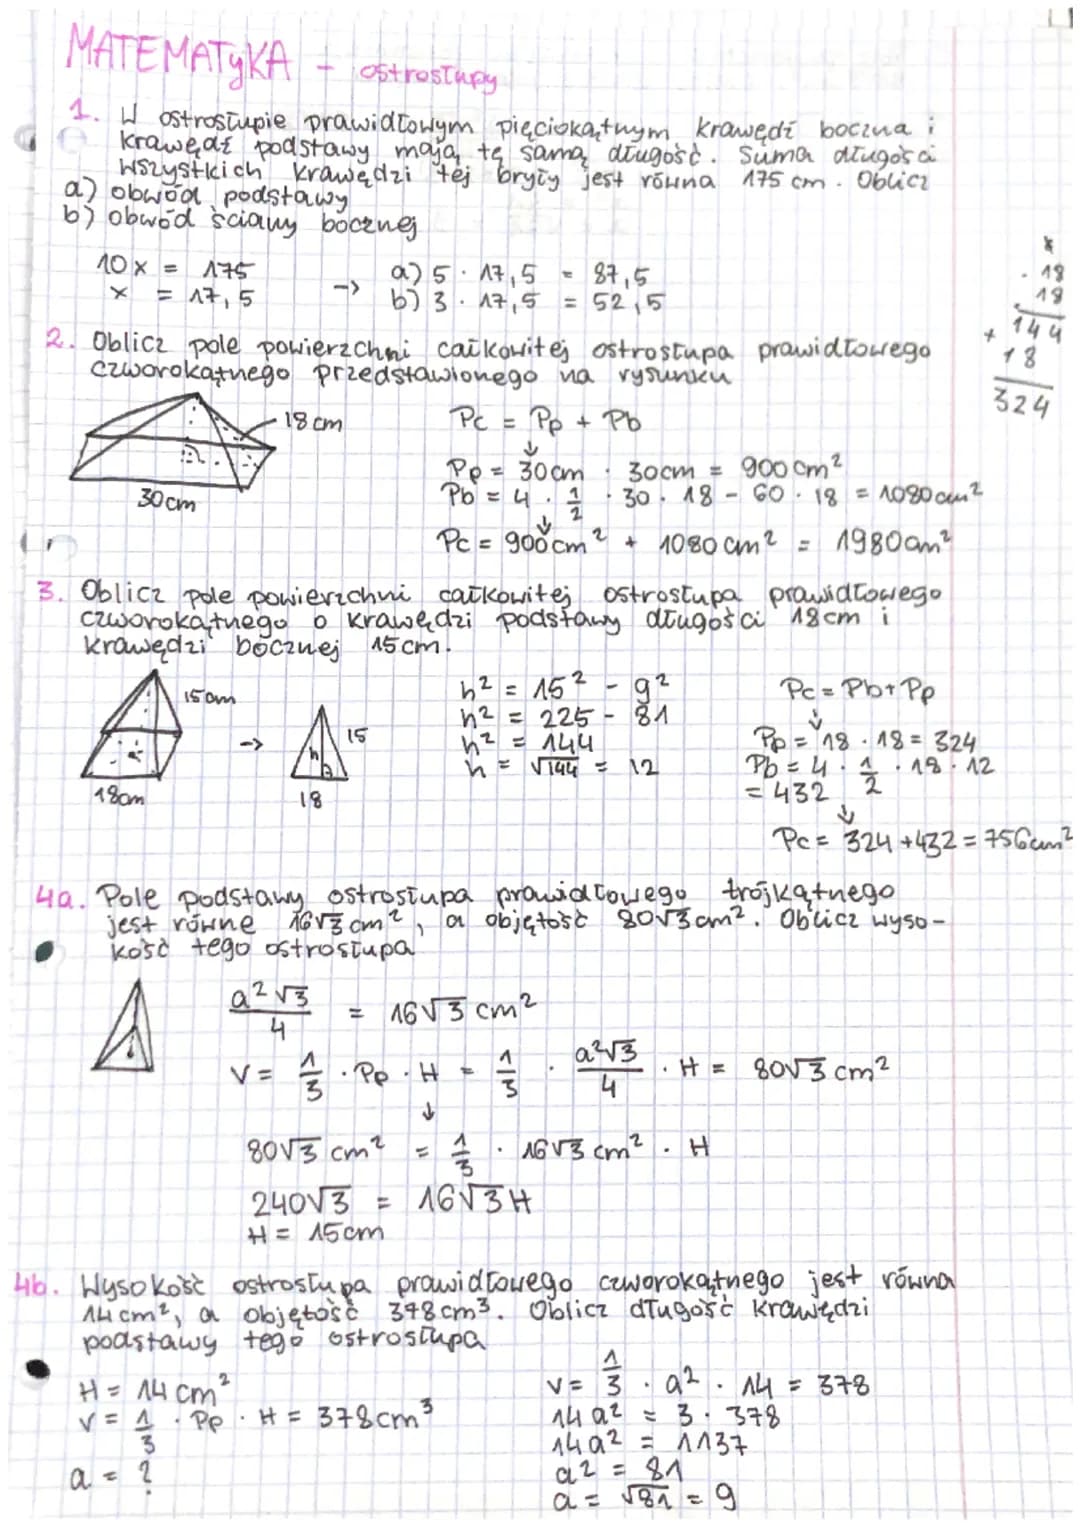 MATEMATYKA - ostrosłupy
1. W ostrosłupie prawidłowym pięciokątnym krawędź boczna i
krawędź podstawy mają tę samą długość. Suma długości
wszystkich krawędzi tej bryły jest równa 175 cm. Oblicz
a) obwód podstawy
b) obwód ściany bocznej
10x = 175
x = 17,5
->
a) 5 · 17,5 = 87,5
b) 3 · 17,5 = 52,5
18
· 18
144
+ 18
324
2. Oblicz pole powierzchni całkowitej ostrosłupa prawidłowego
czworokątnego przedstawionego na rysunku
18 cm
30 cm
Pc = Pp + Pb
↓
Pp = 30cm · 30cm = 900 cm²
Pb = 4 · 1/2 · 30 · 18 - 60 · 18 = 1080 cm²
↓
Pc = 900cm² + 1080 cm² = 1980cm²
3. Oblicz pole powierzchni całkowitej ostrosłupa prawidłowego
czworokątnego o krawędzi podstawy długości 18cm i
krawędzi bocznej 15cm.
15cm
18cm
->
15
h
18
h² = 15² - 9²
h² = 225 - 81
h² = 144
h = √144 = 12
Pc = Pb + Pp
↓
Pp = 18 · 18 = 324
Pb = 4 · 1/2 · 18 · 12
= 432
↓
Pc = 324 + 432 = 756cm²
4a. Pole podstawy ostrosłupa prawidłowego trójkątnego
jest równe 16√3 cm², a objętość 80√3cm². Oblicz wyso-
kość tego ostrosłupa
a²√3/4 = 16√3 cm²
V = 1/3 · Pp · H = 1/3 · a²√3/4 · H = 80√3 cm²
↓
80√3 cm² = 1/3 · 16√3 cm² · H
240√3 = 16√3 H
H = 15cm
4b. Wysokość ostrosłupa prawidłowego czworokątnego jest równa
14 cm², a objętość 378cm³. Oblicz długość krawędzi
podstawy tego ostrosłupa
H = 14 cm²
V = 1/3 · Pp · H = 378cm³
a = ?
V = 1/3 · a² · 14 = 378
14a² = 3 · 378
14a² = 1137
a² = 81
a = √81 = 9